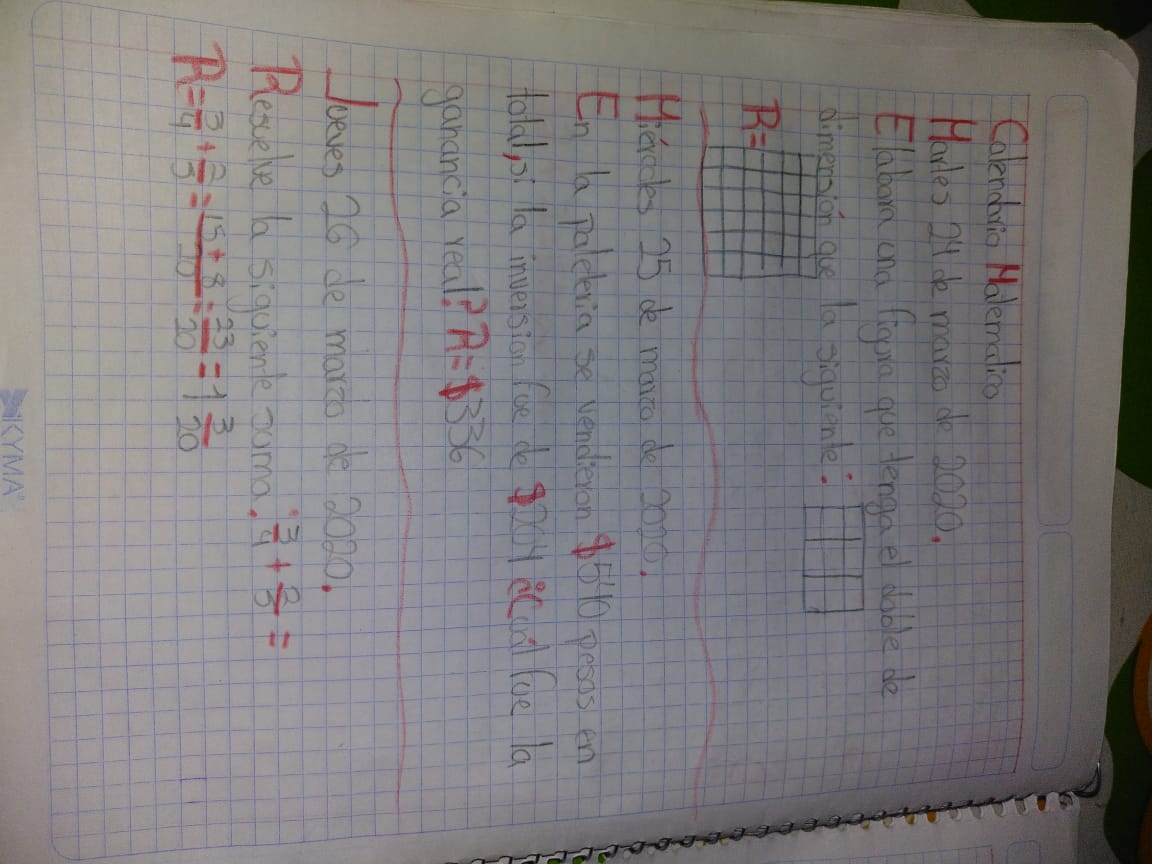 Calendario Matematico
Martes 24 de marzo de 2020.
Elabora una figura que tenga el doble de
dimensión que la siguiente:
R=
Miércoles 25 de marzo de 2020.
En la paleteria se vendieron $540 pesos en
total, si la inversion fue de $204 ¿Cuál fue la
ganancia real? R=$336
Jueves 26 de marzo de 2020.
Resuelve la siguiente suma. 3/4 + 2/5 =
R= 3/4 + 2/5 = 15+8/20 = 23/20 = 1 3/20
KYMA